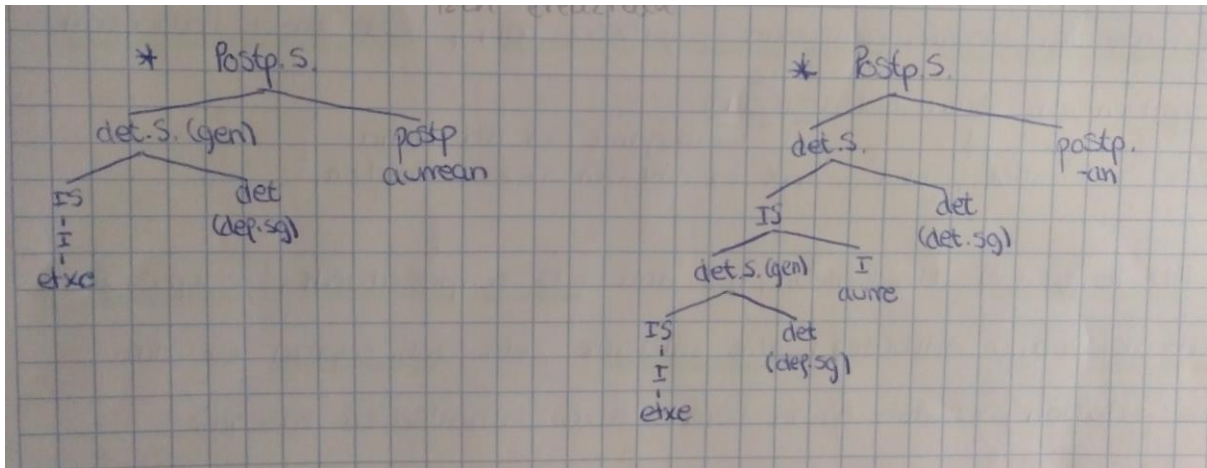 * Postp. S.
det. S. (gen) postp
aurrean
IS det
I (dep.sg)
etxe
* Postp. S.
det. S. postp.
-an
IS det
(det.sg)
det. S. (gen) I
aurre
IS det
I (def.sg)
etxe